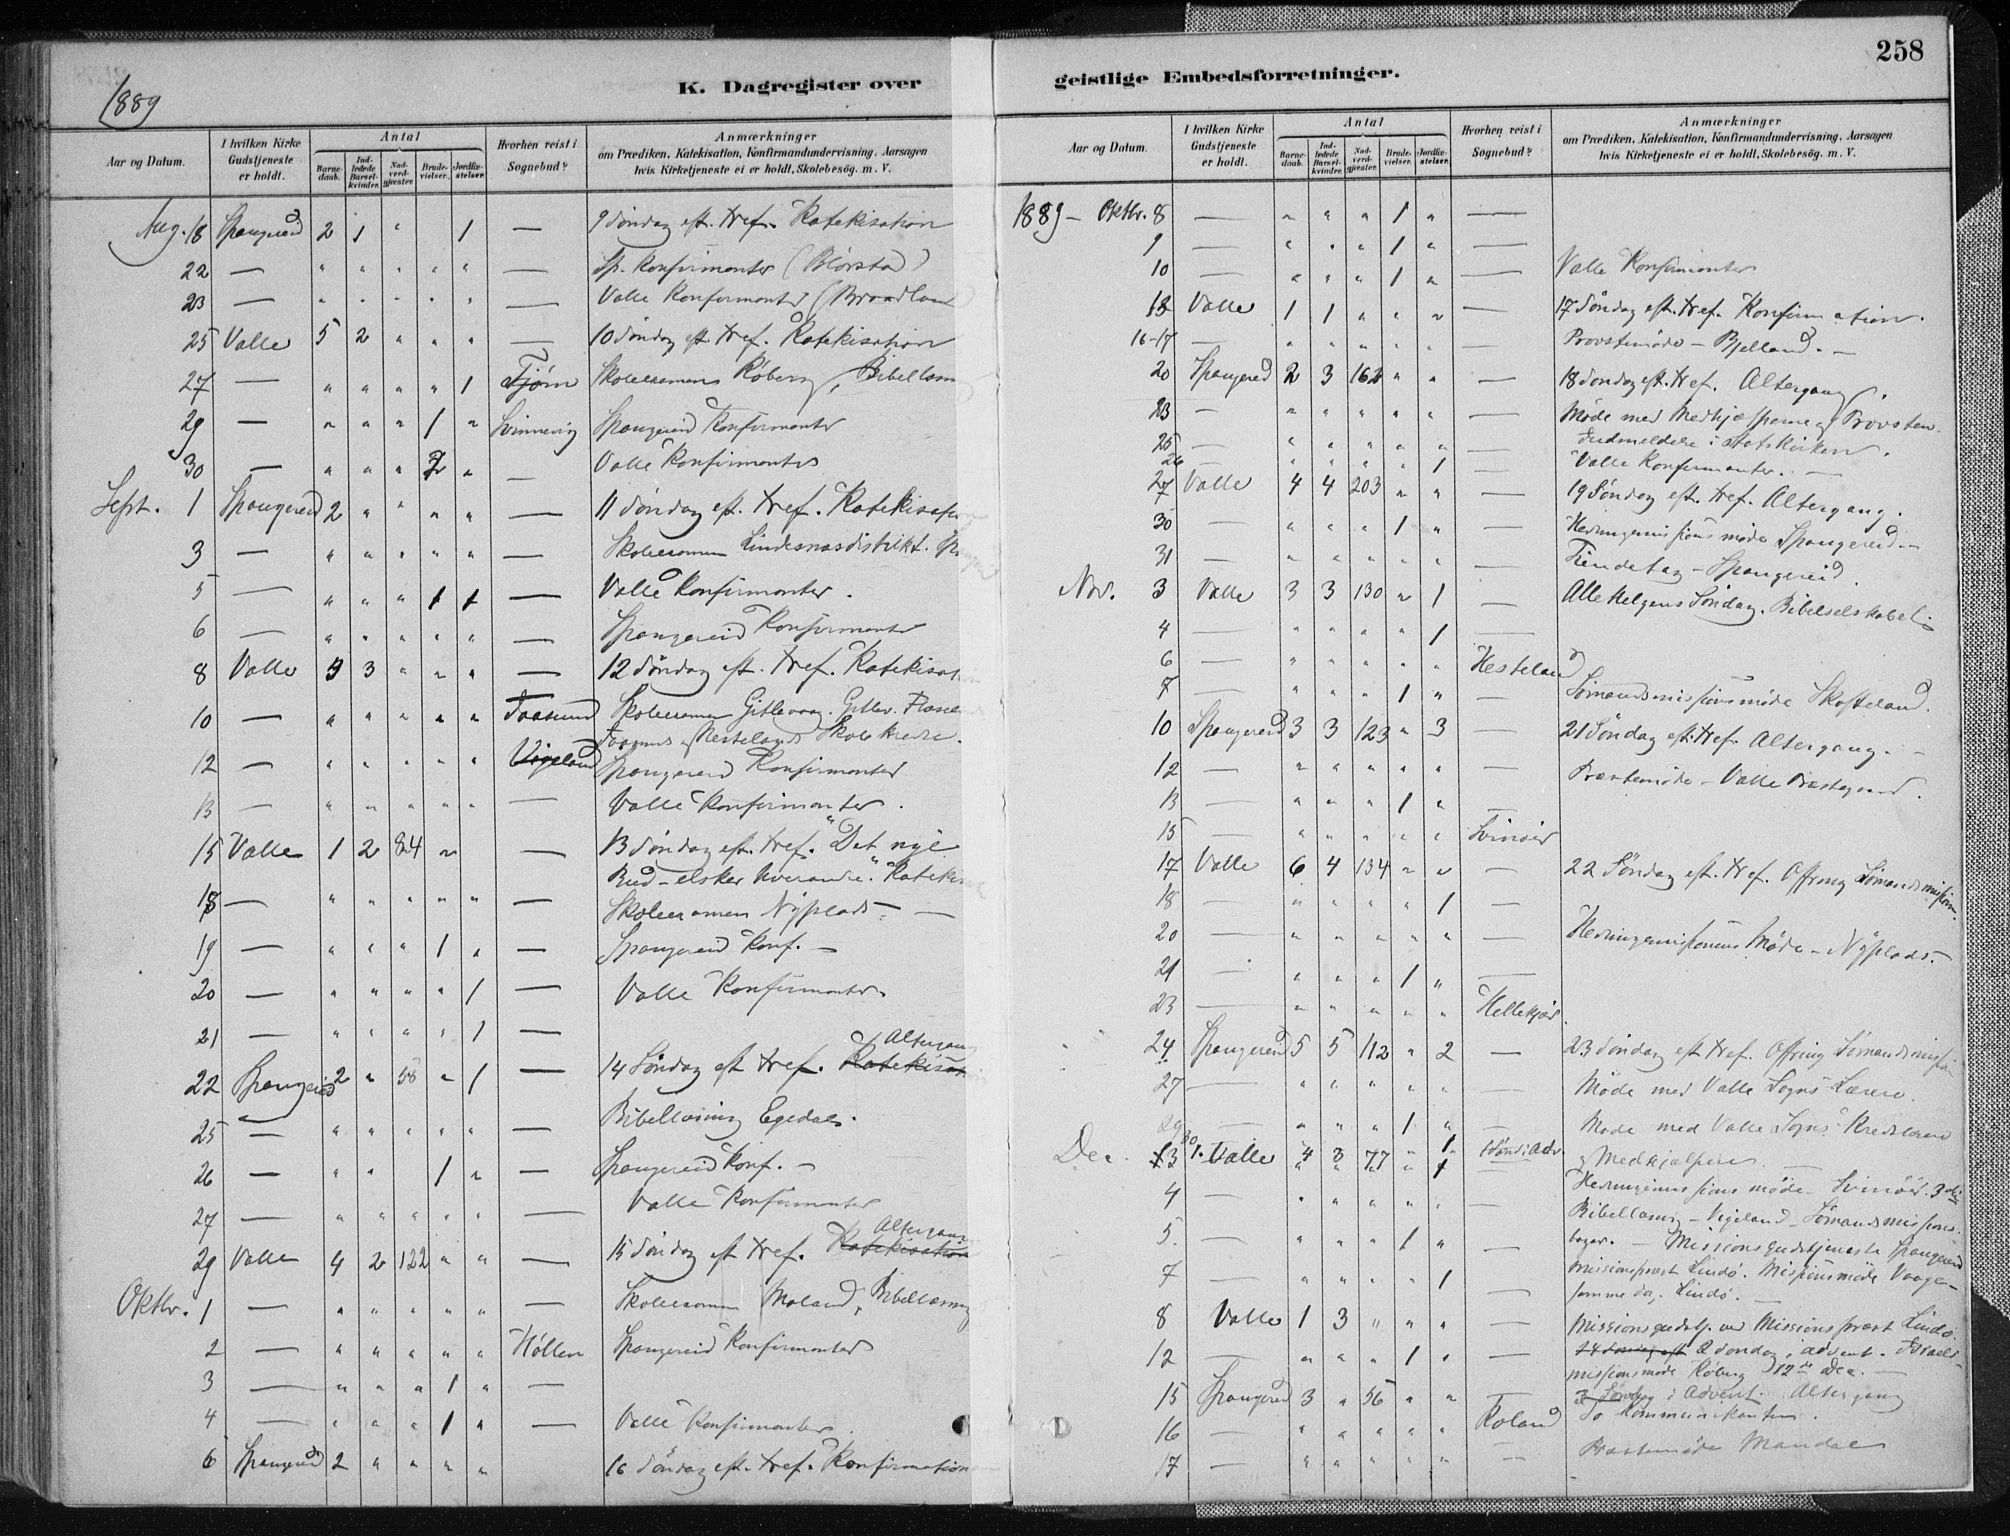 258
1889
K. Dagregister over
geistlige Embedsforretninger.
Aar og Datum.
I hvilken Kirke Gudstjeneste er holdt.
Antal
Barne-daab.
Ind-ledede Barsel-kvinder.
Nad-verd-gjester.
Brude-vielser.
Jordfæ-stelser.
Hvorhen reist i Sognebud?
Anmærkninger
om Prædiken, Katekisation, Konfirmandundervisning, Aarsagen
hvis Kirketjeneste ei er holdt, Skolebesög. m. V.
Aug. 18 Spangereid 2 1 " 1 — 9 Söndag eft. tref. Katekisation
22 — " " " " " — Sp. Konfirmanter
23 — " " " " " — Valle Konfirmanter (Braadland
25 Valle 5 2 " " " — 10 Söndag eft. tref. Katekisation
27 — " " " " 1 Tjörn Skoleexamen Röberg, Bibellæsn
29 — " " " 1 " Svinnevig Spangereid Konfirmanter
30 — " " " 2 " — Valle Konfirmanter
Sept. 1 Spangereid 2 " " " " — 11 Söndag eft. tref. Katekisation
3 — " " " " " — Skoleexamen Lindesnæsdistrikt.
5 — " " " 1 1 — Valle Konfirmanter.
6 — " " " " " — Spangereid Konfirmanter
8 Valle 5 3 " " " — 12 Söndag eft. tref. Katekisation
10 — " " " " " Faasund Skoleexamen Gitlevaag.
Skolekredse.
12 — " " " " " Vigeland Spangereid Konfirmanter
13 — " " " " " — Valle Konfirmanter.
15 Valle 1 2 84 " — 13 Söndag eft. tref. "Det nye
Bud – elsker hverandre." Katekisa
18 — " " " " " — Skoleexamen Nyplads. —
19 — " " " 1 " — Spangereid Konf. —
20 — " " " " 1 — Valle Konfirmanter.
21 — " " " " 1 —
Altergang
22 Spangereid 2 " 58 " 1 — 14 Söndag eft tref. Katekisation
25 — " " " " " — Bibellæsning Egedal.
26 — " " " 1 " — Spangereid Konf. —
27 — " " " " " — Valle Konfirmanter
Altergang
29 Valle 4 2 122 " " — 15 Söndag eft tref. Katekisation
Oktbr. 1 — " " " " " — Skoleexamen Moland, Bibellæsning
2 — " " " " " Höllen Spangereid Konfirmanter
3 — " " " 1 " —
4 — " " " 1 " — Valle Konfirmanter.
6 Spangereid 2 " " " " 16 Söndag eft. tref. Konfirmation
Aar og Datum.
I hvilken Kirke Gudstjeneste er holdt.
Antal
Barne-daab.
Ind-ledede Barsel-kvinder.
Nad-verd-gjester.
Brude-vielser.
Jordfæ-stelser.
Hvorhen reist i Sognebud?
Anmærkninger
om Prædiken, Katekisation, Konfirmandundervisning, Aarsagen
hvis Kirketjeneste ei er holdt, Skolebesög. m. V.
1889 – Oktbr. 8 — " " " 1 " —
9 — " " " 1 " —
10 — " " " 1 " — Valle Konfirmanter
13 Valle 1 1 " " " — 17 Söndag eft. tref. Konfirmation.
16-17 — " " " " " — Provstemöde – Bjelland. —
20 Spangereid 2 3 162 " " — 18 Söndag eft. tref. Altergang.
23 — " " " " " — Möde med Medhjælperne og Provsten.
25 — " " " " " — Indmeldelse i Statskirken.
26 — " " " " 1 Valle Konfirmanter. —
27 Valle 4 4 203 " " — 19 Söndag eft. tref. Altergang.
30 — " " " 1 " — Hedningemissionsmöde Spangereid —
31 — " " " " " — Tiendetag – Spangereid.
Nov. 3 Valle 3 3 130 " 1 — Alle Helgens Söndag. Bibelselskabet
4 — " " " " 1 —
6 — " " " " " Hesteland
7 — " " " 1 " — Sömandsmissionsmöde Skofteland.
10 Spangereid 3 3 123 " 3 — 21 Söndag eft. tref. Altergang. —
12 — " " " " " — Præstemöde – Valle Præstegaard.
13 — " " " 1 " —
15 — " " " " " Svinöer
17 Valle 6 4 134 " " — 22 Söndag eft. tref. Offring Sömandsmission.
18 — " " " " 1 —
20 — " " " " " — Hedningemissionens Möde – Nyplads. —
21 — " " " 1 " —
23 — " " " " " Hellekjær
24 Spangereid 5 5 112 " 2 — 23 Söndag eft tref. Offring Sömandsmission
27 — " " " " " — Möde med Valle Sogns Lærere.
29 — " " " 1 " — Möde med Valle Sogns
Dec. 1. Valle 4 3 77 " 1 1 Sönd. i Adv. og Medhjælpere. —
4 — " " " " " — Hedningemissionsmöde – Svinöer. 3
5. — " " " 1 " — Bibellæsning – Vigeland – Sömandsmissions-
— Missionsgudstjeneste Spangereid
7 — " " " " 1 — Missionsprest Lindö. Missionsmöde Vaage –
samme dag. Lindö. —
8 Valle 1 3 " " " Missionsgudstj. ved Missionsprest Lindö.
12 — " " " 1 " — 2 Söndag i Advent. Israels-
missionsmöde Röberg 12te Dec. —
15 Spangereid 3 " 56 " " — 3 Söndag i Advent. Altergang
16 — " " " " " Roland To Kommunikanter.
17 — " " " " " — Præstemöde Mandal